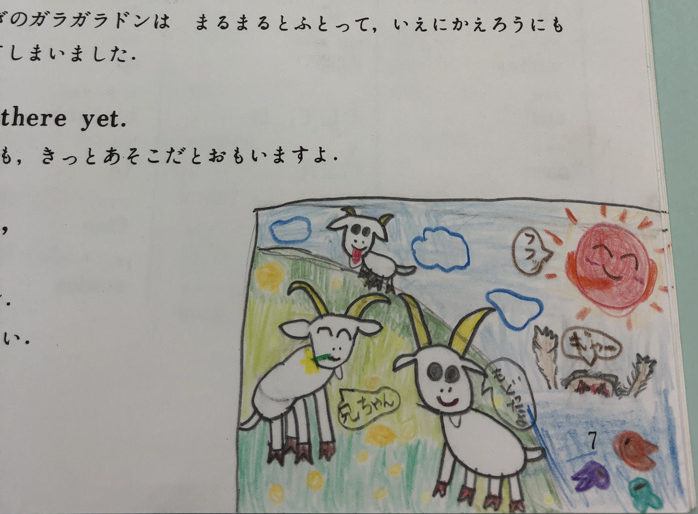 のガラガラドンは　まるまるとふとって，いえにかえろうにも
しまいました．
there yet.
も，きっとあそこだとおもいますよ．
，
．
い．
フフッ
ぎゃー
兄ちゃん
7